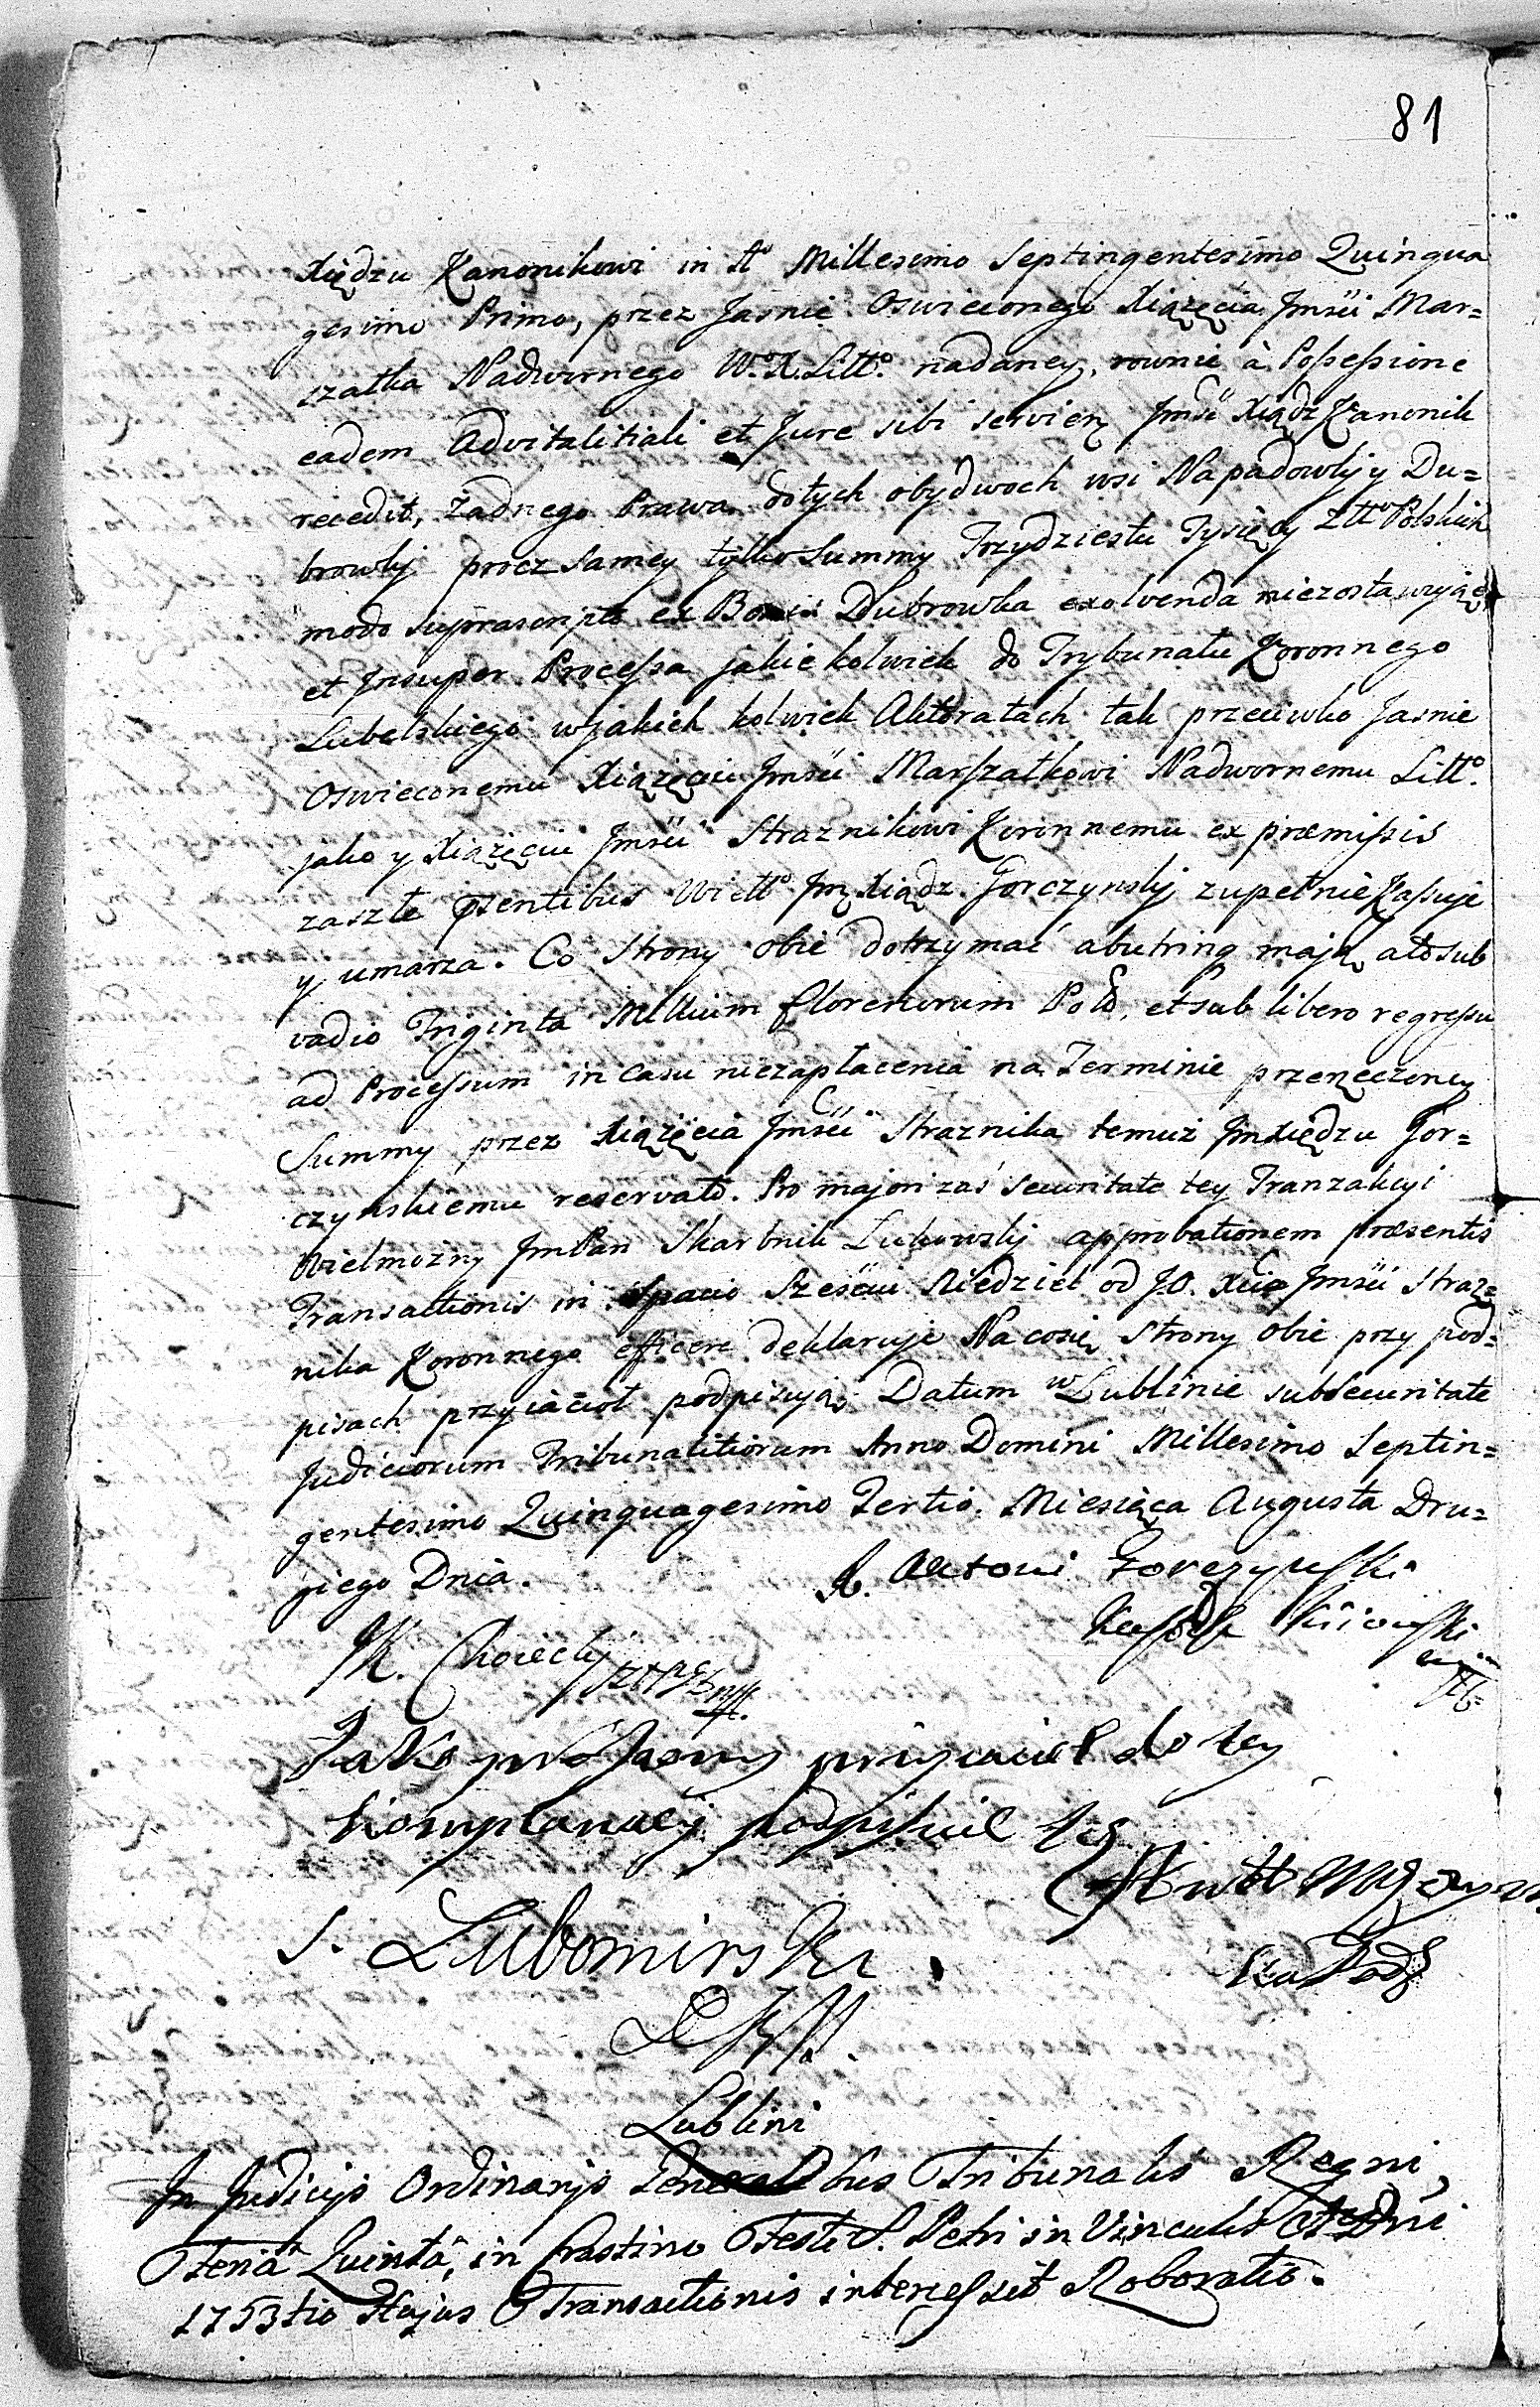 81
Xiędzu Kanonikowi in Ao Millesimo Septingentesimo Quinqua
gesimo Primo, przez Jasnie Oswieconego Xiążęcia Jmści Mar=
szałka Nadwornego W. X. Litto nadaney, rownie à Possessione
eadem Advitalitiali et Jure sibi servien Jmść Xiądz Kanonik
recedit, żadnego Prawa do tych obydwoch wsi Napadowki y Du=
browki procz samey tylko Summy Trzydziestu Tysięcy Zltt Polskich
modo suprascripto ex Bonis Dubrowka exolvenda niezostawując
et Insuper Processa jakiekolwiek do Trybunału Koronnego
Lubelskiego w jakich kolwiek Aktoratach tak przeciwko Jasnie
Oswieconemu Xiążęciu Jmści Marszałkowi Nadwornemu Litto
jako y Xiążęciu Jmści Straznikowi Koronnemu ex præmissis
zaszłe psentibus Wiel Jm Xiądz Gorczynskij zupełnie Kassuje
y umarza. Co Strony obie dotrzymać abutring mają ato sub
vadio Triginta Millium florenorum Pol, et sub libero regressu
ad Processum in casu niezapłacenia na Terminie przerzeczoney
Summy przez Xiążęcia Jmści Straznika temuż Jmxiędzu Gor=
czynskiemu reservato. Pro majori zaś securitate tey Tranzakcyi
Wielmożny JmPan Skarbnik Łukowskij approbationem præsentis
Transactionis in spacio Sześciu Niedziel od J.O. Xcia Jmści Straz=
nika Koronnego efficere deklaruje Na co się Strony obie przy pod=
pisach przyiacioł podpisują. Datum w Lublinie sub Securitate
Judiciorum Tribunalitiorum Anno Domini Millesimo Septin=
gentesimo Quinquagesimo Tertio. Miesiąca Augusta Dru=
giego Dnia.
X. Antoni Gorczynski
M. Choiecki
Jako proszony przyiaciel do tey
Komplanacij podpisuię się
S. Lubomirski
Lublini
In Judicijs Ordinarijs Generalibus Tribunalis Regni,
Feria Quinta, in Crastino Festi S. Petri in Vinculis A Dni
1753tio Hujus Transactionis intercessit Roboratio.